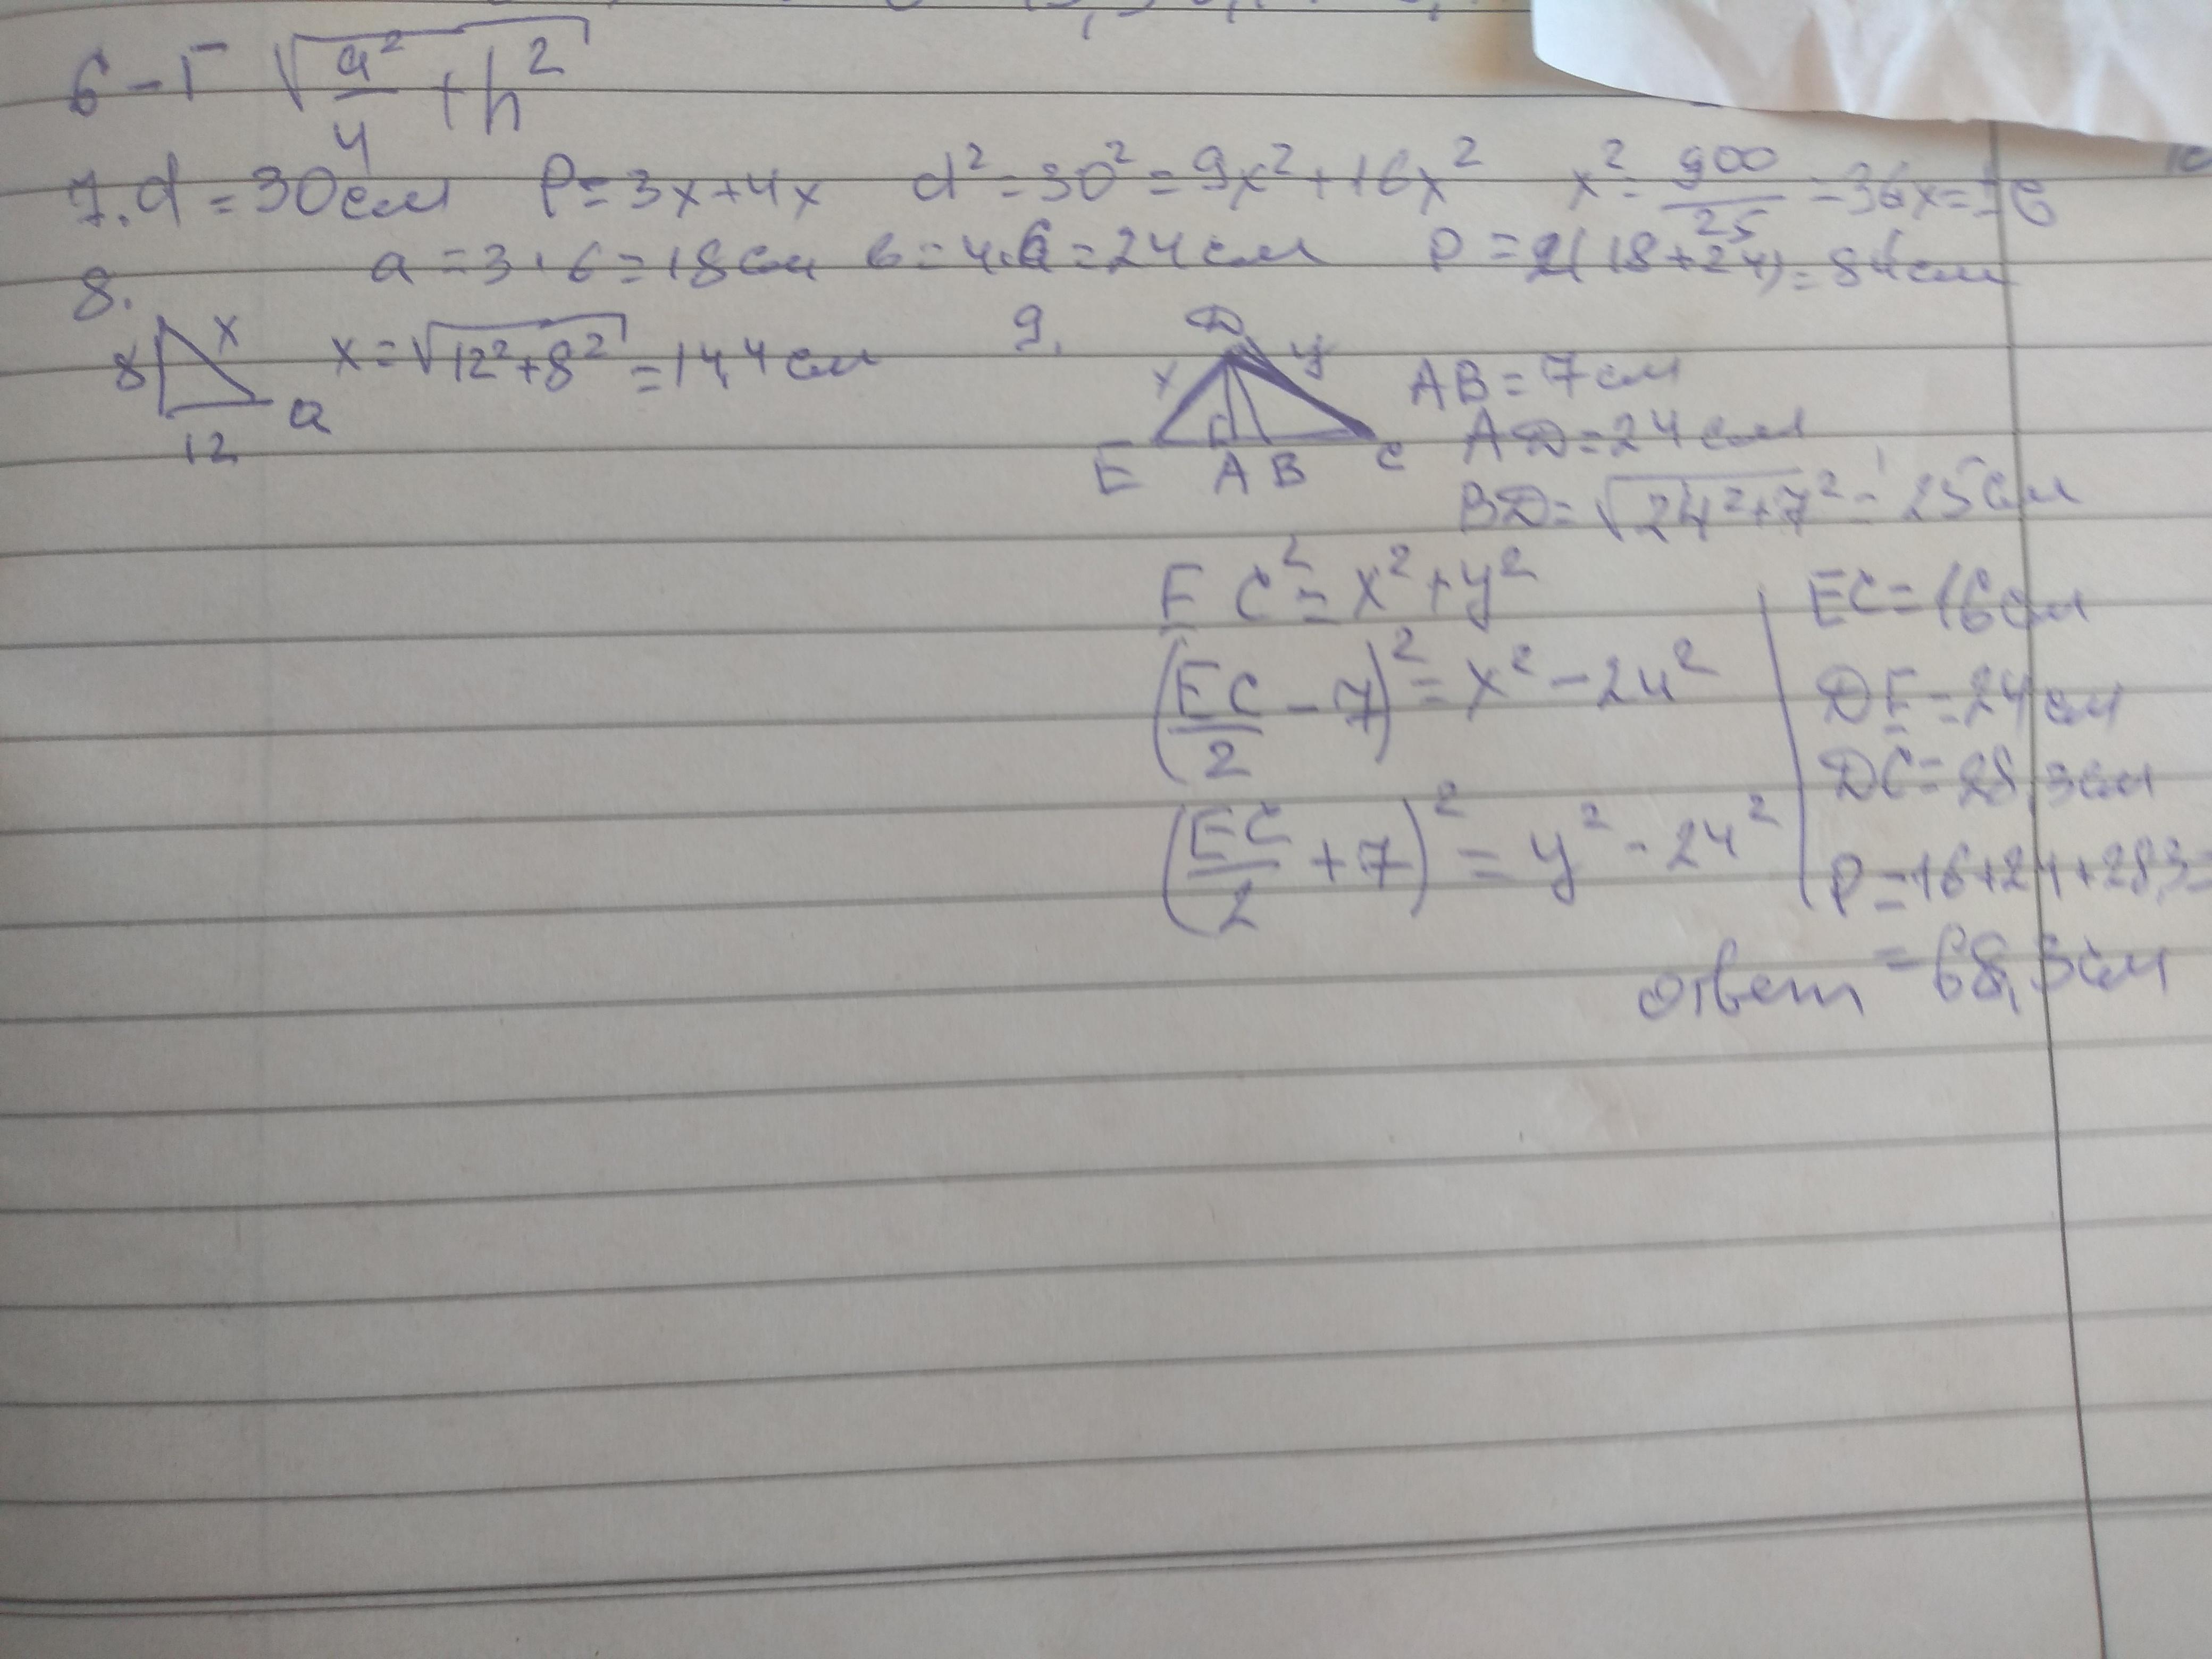 6 - Г √(a²/4 + h²)
7. d = 30 см P = 3x + 4x d² = 30² = 9x² + 16x² x² = 900/25 = 36 x = ±6
a = 3·6 = 18 см в = 4·6 = 24 см P = 2(18+24) = 84 см
8.
8 x 12 a x = √(12² + 8²) = 14,4 см
9. D x y E A B C
AB = 7 см
AD = 24 см
BD = √(24² + 7²) = 25 см
EC² = x² + y²
(EC/2 - 7)² = x² - 24²
(EC/2 + 7)² = y² - 24²
EC = 16 см
DE = 24 см
DC = 28,3 см
P = 16 + 24 + 28,3 =
ответ = 68,3 см